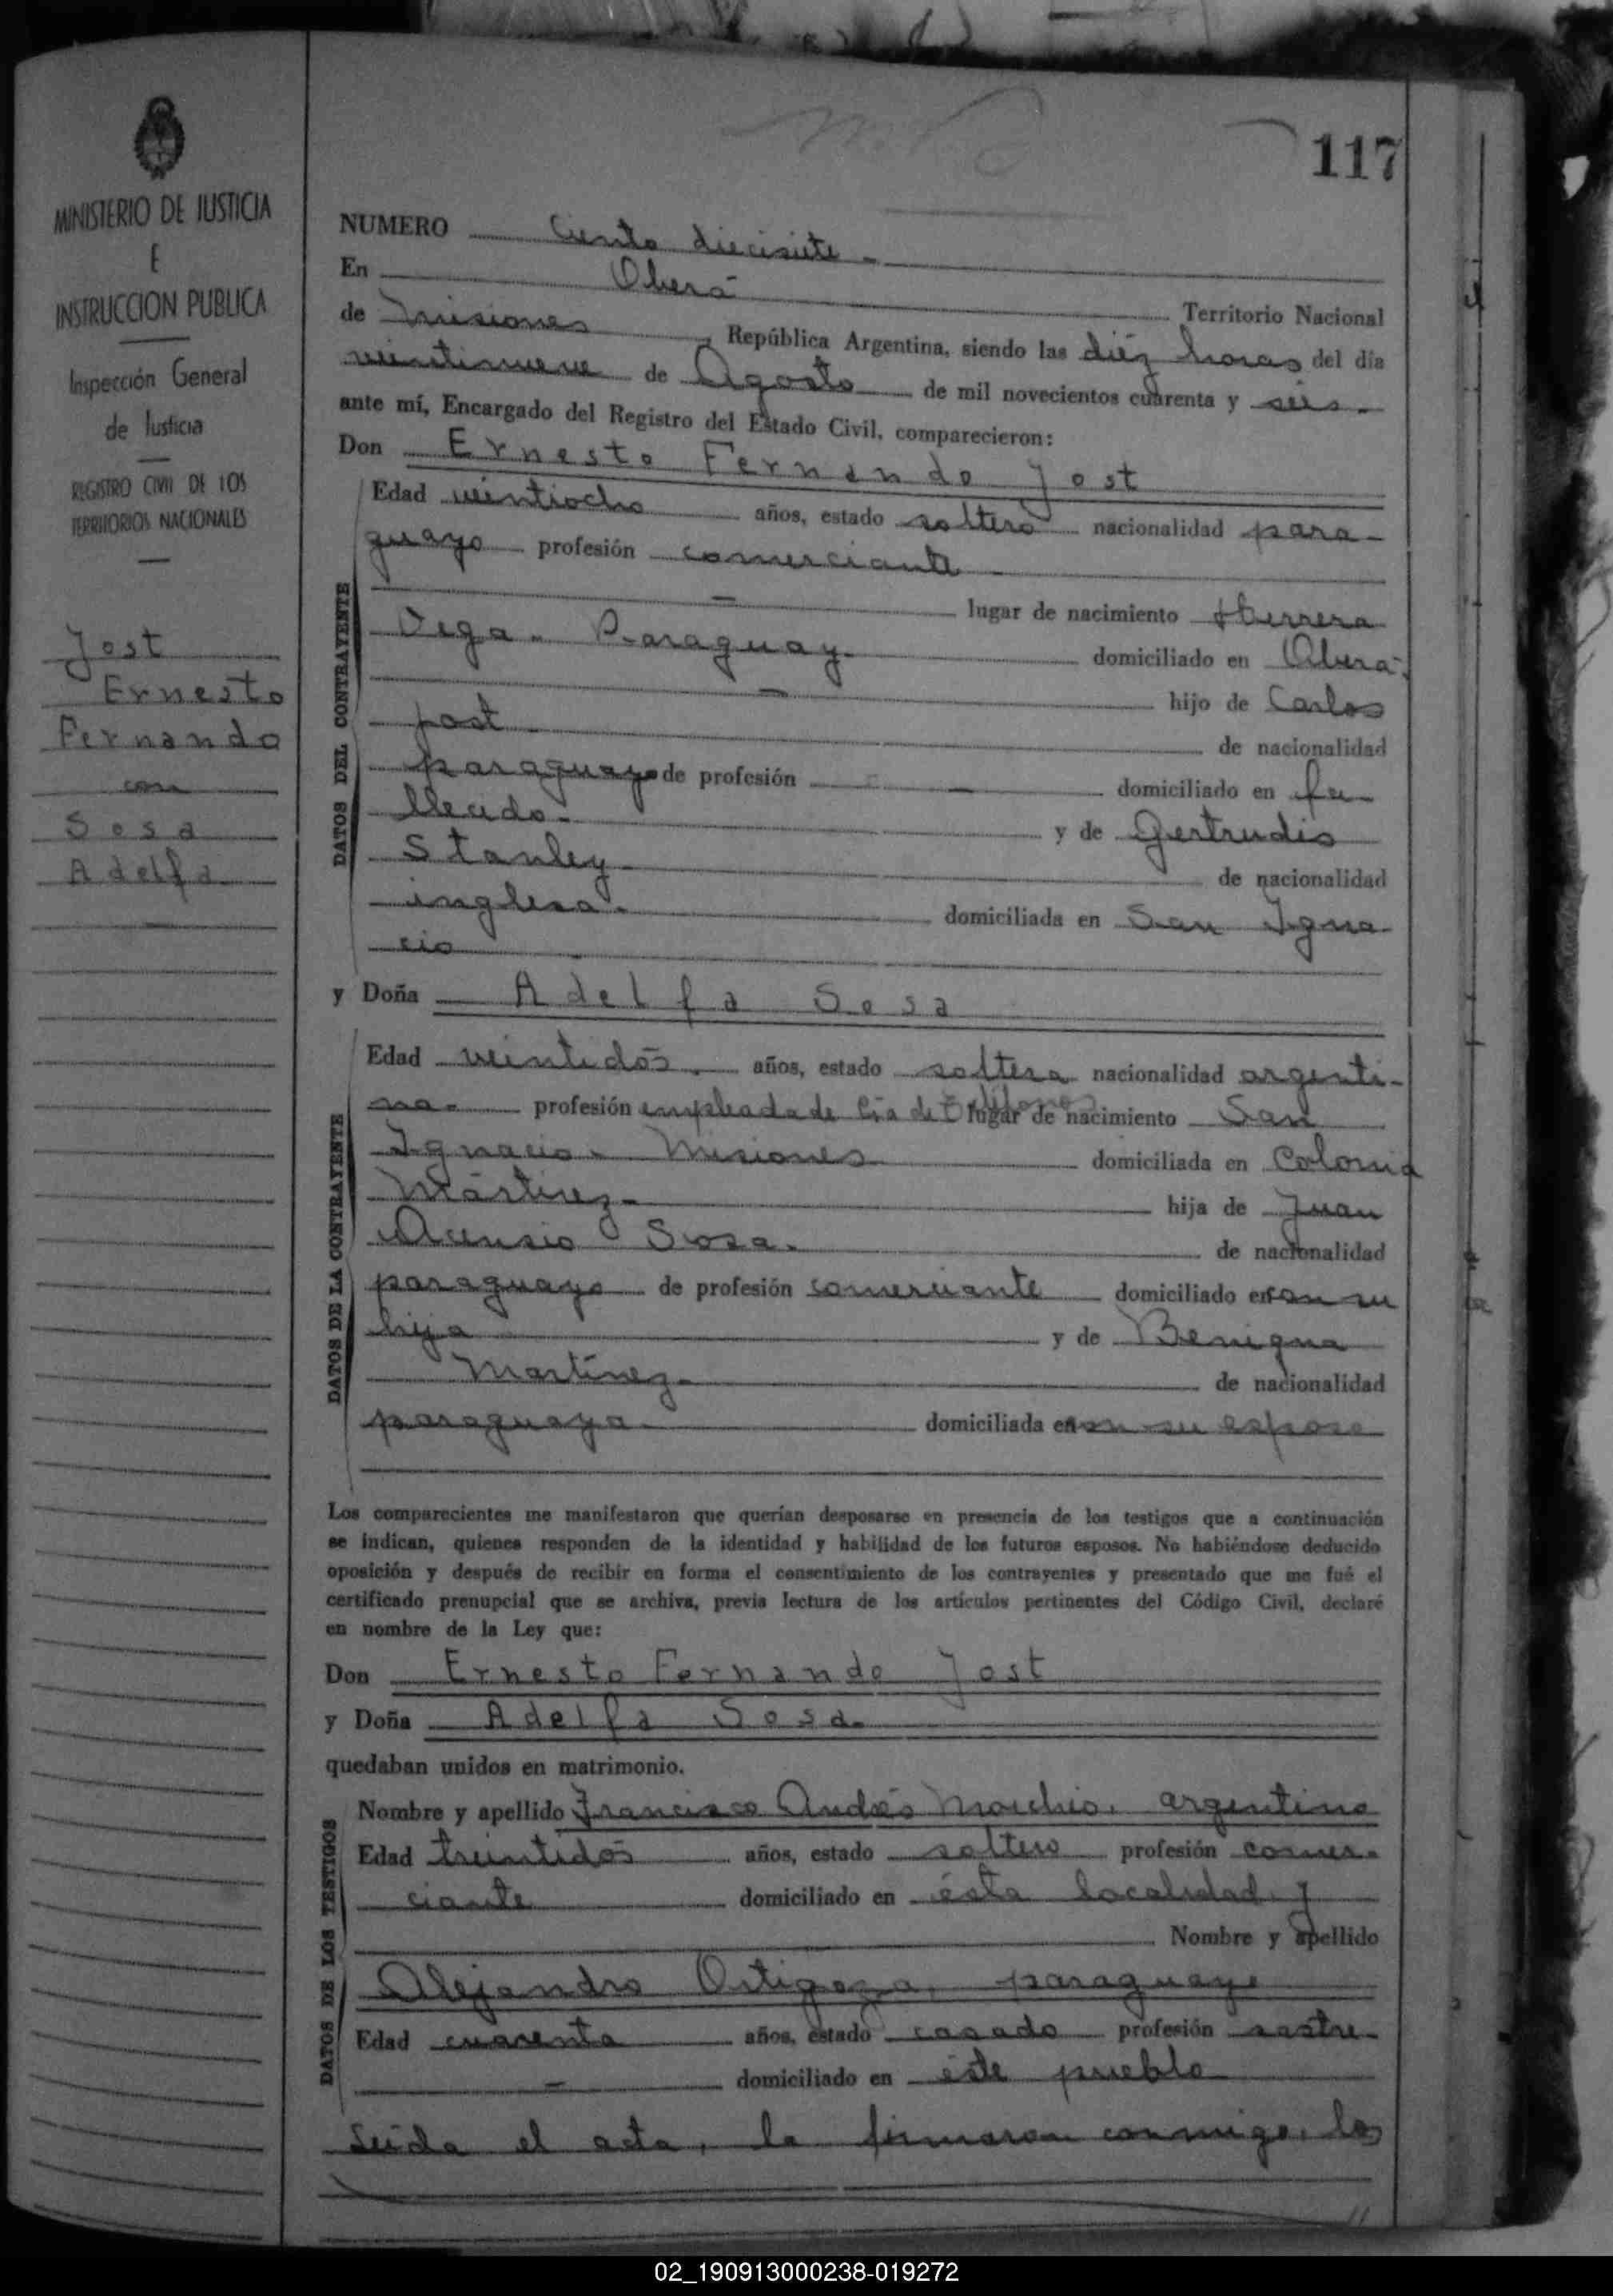 117
MINISTERIO DE JUSTICIA
E
INSTRUCCION PUBLICA
Inspección General
de Justicia
REGISTRO CIVIL DE LOS
TERRITORIOS NACIONALES
Jost
Ernesto
Fernando
con
Sosa
Adelfa
NUMERO Ciento diecisiete -
En Oberá
Territorio Nacional
de Misiones, República Argentina, siendo las diéz horas del día
veintinueve de Agosto de mil novecientos cuarenta y seis.-
ante mí, Encargado del Registro del Estado Civil, comparecieron:
Don Ernesto Fernando Jost
DATOS DEL CONTRAYENTE
Edad veintiocho años, estado soltero nacionalidad para-
guayo profesión comerciante
- lugar de nacimiento Herrera
Vega - Paraguay. domiciliado en Oberá,
- hijo de Carlos
Jost de nacionalidad
paraguayo de profesión - domiciliado en fa-
llecido. y de Gertrudis
Stanley de nacionalidad
inglesa. domiciliada en San Igna-
cio
y Doña Adelfa Sosa
DATOS DE LA CONTRAYENTE
Edad veintidós. años, estado soltera nacionalidad argenti-
na. profesión empleada de Cia de Teléfonos lugar de nacimiento San
Ignacio - Misiones domiciliada en Colonia
Mártirez hija de Juan
Acensio Sosa. de nacionalidad
paraguayo de profesión comerciante domiciliado en con su
hija y de Benigna
Martínez- de nacionalidad
paraguaya. domiciliada en con su esposo
Los comparecientes me manifestaron que querían desposarse en presencia de los testigos que a continuación
se indican, quienes responden de la identidad y habilidad de los futuros esposos. No habiéndose deducido
oposición y después de recibir en forma el consentimiento de los contrayentes y presentado que me fué el
certificado prenupcial que se archiva, previa lectura de los artículos pertinentes del Código Civil, declaré
en nombre de la Ley que:
Don Ernesto Fernando Jost
y Doña Adelfa Sosa.
quedaban unidos en matrimonio.
DATOS DE LOS TESTIGOS
Nombre y apellido Francisco Andrés Morchio, argentino
Edad treintidós años, estado soltero profesión comer-
ciante domiciliado en ésta localidad y
Nombre y apellido
Alejandro Ortigoza, paraguayo
Edad cuarenta años, estado casado profesión sastre-
- domiciliado en éste pueblo
Leída el acta, la firmaron conmigo, los
02_190913000238-019272